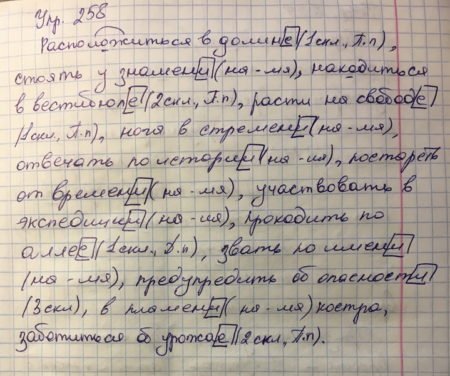 Упр. 258
Расположиться в долине (1 скл., П.п),
стоять у знамени (на -мя), находиться
в вестибюле (2 скл., П.п), расти на свободе
(1 скл., П.п), нога в стремени (на -мя),
отвечать по истории (на -ия), постареть
от времени (на -мя), участвовать в
экспедиции (на -ия), проходить по
аллее (1 скл., Д.п), звать по имени
(на -мя), предупредить об опасности
(3 скл), в пламени (на -мя) костра,
заботиться об урожае (2 скл., П.п).